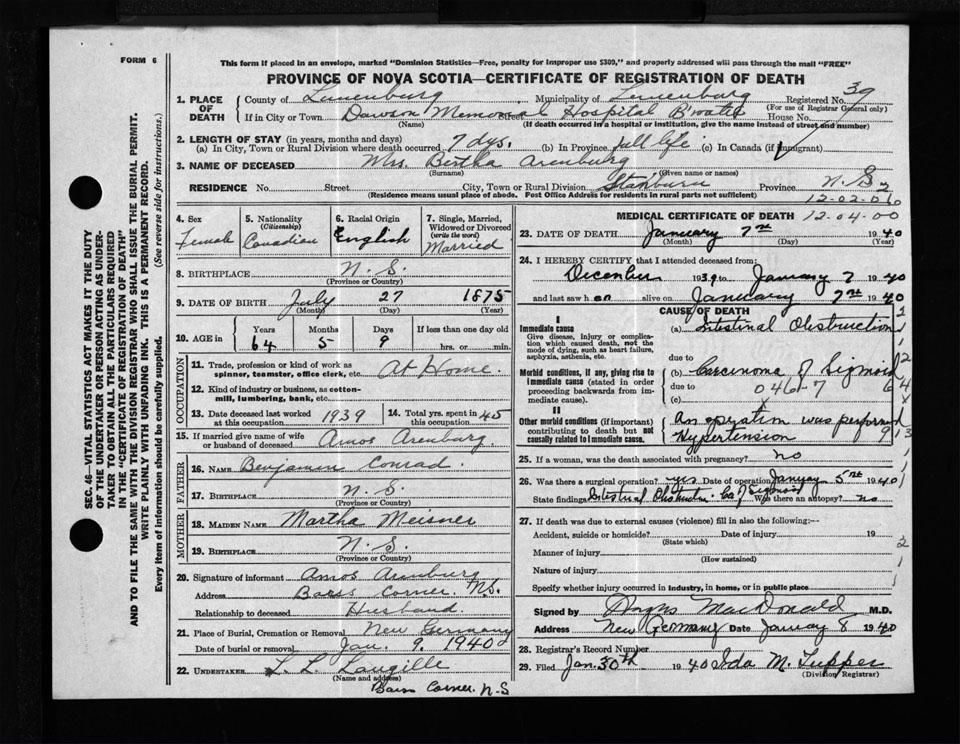 FORM 6
This form if placed in an envelope, marked "Dominion Statistics—Free, penalty for improper use $300," and properly addressed will pass through the mail "FREE"
PROVINCE OF NOVA SCOTIA—CERTIFICATE OF REGISTRATION OF DEATH
SEC. 46—VITAL STATISTICS ACT MAKES IT THE DUTY
OF THE UNDERTAKER OR PERSON ACTING AS UNDER-
TAKER TO OBTAIN ALL THE PARTICULARS REQUIRED
IN THE "CERTIFICATE OF REGISTRATION OF DEATH"
AND TO FILE THE SAME WITH THE DIVISION REGISTRAR WHO SHALL ISSUE THE BURIAL PERMIT.
WRITE PLAINLY WITH UNFADING INK. THIS IS A PERMANENT RECORD.
Every item of information should be carefully supplied. (See reverse side for instructions.)
1. PLACE OF DEATH County of Lunenburg Municipality of Lunenburg Registered No. 39
(For use of Registrar General only)
If in City or Town Dawson Memorial Hospital B'water Street House No.
(Name) (If death occurred in a hospital or institution, give the name instead of street and number)
2. LENGTH OF STAY (in years, months and days)
(a) In City, Town or Rural Division where death occurred 7 dys. (b) In Province full life (c) In Canada (if immigrant)
3. NAME OF DECEASED Mrs. Bertha Arenburg
(Surname) (Given name or names)
RESIDENCE No. Street City, Town or Rural Division Stanburn Province N.S.
(Residence means usual place of abode. Post Office Address for residents in rural parts not sufficient)
12-02-06
12-04-00
4. Sex Female
5. Nationality (Citizenship) Canadian
6. Racial Origin English
7. Single, Married, Widowed or Divorced (write the word) Married
8. BIRTHPLACE N. S.
(Province or Country)
9. DATE OF BIRTH July 27 1875
(Month) (Day) (Year)
10. AGE in Years Months Days If less than one day old
64 5 9 hrs. or min.
OCCUPATION
11. Trade, profession or kind of work as spinner, teamster, office clerk, etc. At Home.
12. Kind of industry or business, as cotton-mill, lumbering, bank, etc.
13. Date deceased last worked at this occupation 1939
14. Total yrs. spent in this occupation 45
15. If married give name of wife or husband of deceased Amos Arenburg.
FATHER
16. NAME Benjamin Conrad.
17. BIRTHPLACE N. S.
(Province or Country)
MOTHER
18. MAIDEN NAME Martha Meisner
19. BIRTHPLACE N. S.
(Province or Country)
20. Signature of informant Amos Arenburg
Address Barss Corner. N.S.
Relationship to deceased Husband.
21. Place of Burial, Cremation or Removal New Germany
Date of burial or removal Jan. 9. 1940
22. UNDERTAKER L. L. Langille
(Name and address)
Barss Corner. N.S
MEDICAL CERTIFICATE OF DEATH
23. DATE OF DEATH January 7th 1940
(Month) (Day) (Year)
24. I HEREBY CERTIFY that I attended deceased from:
December 1939 to January 7 1940
and last saw her alive on January 7th 1940
CAUSE OF DEATH
I
Immediate cause
Give disease, injury or complication which caused death, not the mode of dying, such as heart failure, asphyxia, asthenia, etc.
(a) Intestinal Obstruction
due to
Morbid conditions, if any, giving rise to immediate cause (stated in order proceeding backwards from immediate cause).
(b) Carcinoma of Sigmoid
due to 046-7
(c)
II
Other morbid conditions (if important) contributing to death but not causally related to immediate cause.
An operation was performed
Hypertension
25. If a woman, was the death associated with pregnancy? no
26. Was there a surgical operation? yes Date of operation January 5th 1940
State findings Intestinal Obstruction. Ca of Sigmoid Was there an autopsy? no
27. If death was due to external causes (violence) fill in also the following:—
Accident, suicide or homicide? Date of injury 19
(State which)
Manner of injury
(How sustained)
Nature of injury
Specify whether injury occurred in industry, in home, or in public place
Signed by MacDonald M.D.
Address New Germany Date January 8 1940
28. Registrar's Record Number
29. Filed Jan. 30th 1940 Ida M. Tupper
(Division Registrar)